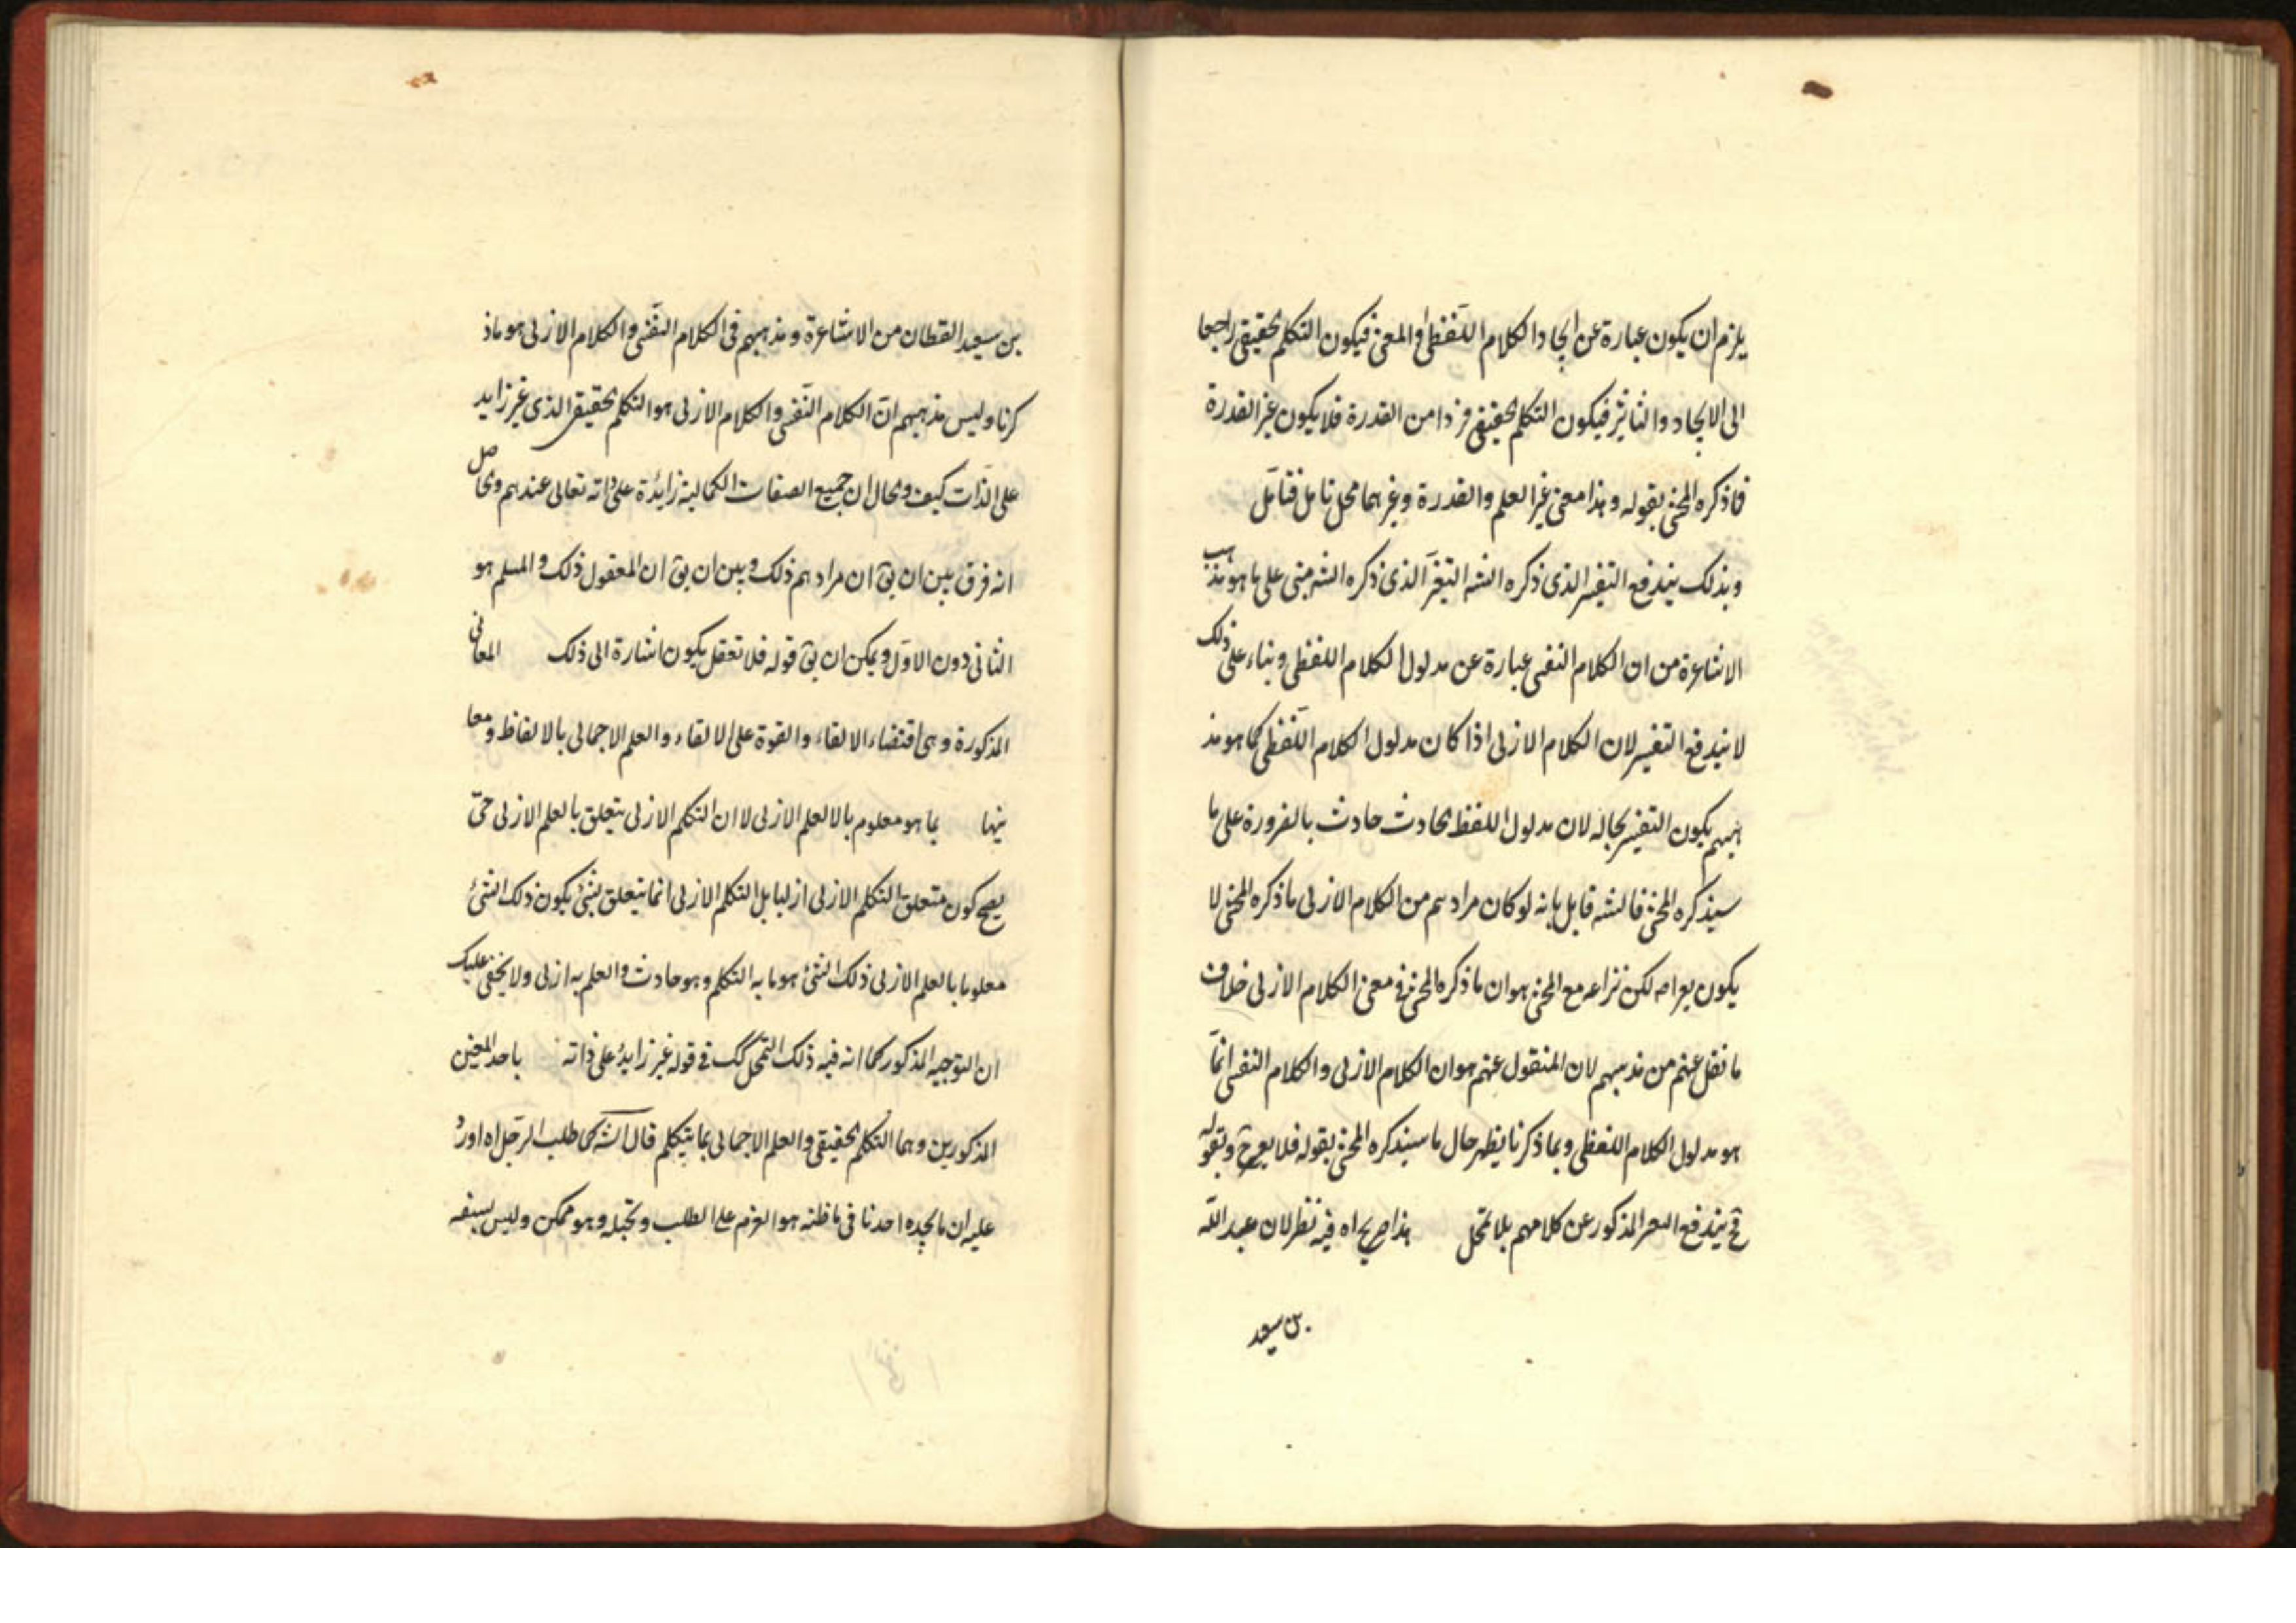 يلزم ان يكون عبارة عن ايجاد الكلام اللفظى او المعنى فيكون التكلم الحقيقى راجعا
الى الايجاد والتاثير فيكون التكلم الحقيقى فردا من القدرة فلا يكون غير القدرة
فما ذكره المحشى بقوله وهذا معنى غير العلم والقدرة وغيرهما محل تامل فتامل
وبذلك يندفع التفسير الذى ذكره الشه التفسير الذى ذكره الشه مبنى على ما هو مذهب
الاشاعرة من ان الكلام النفسى عبارة عن مدلول الكلام اللفظى وبناء على ذلك
لا يندفع التفسير لان الكلام الازلى اذا كان مدلول الكلام اللفظى كما هو مذ
هبهم يكون التفسير بحاله لان مدلول اللفظ الحادث حادث بالضرورة على ما
سيذكره المحشى فالشه قايل بانه لو كان مرادهم من الكلام الازلى ما ذكره المحشى لا
يكون لكن نزاعه مع المحشى هو ان ما ذكره المحشى فى معنى الكلام الازلى خلاف
ما نقل عنهم من مذهبهم لان المنقول عنهم هو ان الكلام الازلى والكلام النفسى انما
هو مدلول الكلام اللفظى وبما ذكرنا يظهر حال ما سيذكره المحشى بقوله فلا وبقوله
ح يندفع المذكور عن كلامهم بلا تمحل هذا صريح اه فيه نظر لان عبد الله
بن سعيد
بن سعيد القطان من الاشاعرة ومذهبهم فى الكلام النفسى والكلام الازلى هو ما ذ
كرنا وليس مذهبهم ان الكلام النفسى والكلام الازلى هو التكلم الحقيقى الذى غير زايد
على الذات كيف والحال ان جميع الصفات الكمالية زايدة على ذاته تعالى عندهم والحاصل
انه فرق بين ان يق ان مرادهم ذلك وبين ان يق ان المعقول ذلك والمسلم هو
الثانى دون الاول ويمكن ان يق قوله فلا تعقل يكون اشارة الى ذلك المعانى
المذكورة وهى اقتضاء الالقاء والقوة على الالقاء والعلم الاجمالى بالالفاظ ومعا
نيها بما هو معلوم بالالعلم الازلى لا ان التكلم الازلى يتعلق بالعلم الازلى حتى
يصح كون متعلق التكلم الازلى ازليا بل التكلم الازلى انما يتعلق بشئ يكون ذلك الشئ
معلوما بالعلم الازلى ذلك الشئ هو ما به التكلم وهو حادث والعلم به ازلى ولا يخفى عليك
ان التوجيه المذكور كما انه فيه ذلك التمحل كك فى قوله غير زايد على ذاته باحد المعنين
المذكورين وهما التكلم الحقيقى والعلم الاجمالى بما يتكلم قال الشه كما طلب الرجل اه اورد
عليه ان ما يجده احدنا فى باطنه هو العزم على الطلب وتخيله وهو ممكن وليس بسفه